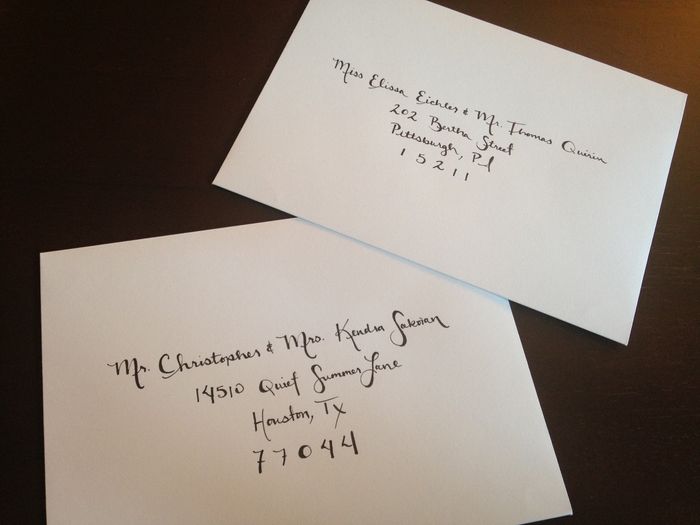 Miss Elissa Eichler & Mr. Thomas Quirin
202 Bertha Street
Pittsburgh, PA
15211
Mr. Christopher & Mrs. Kendra Sakoian
14510 Quiet Summer Lane
Houston, TX
77044